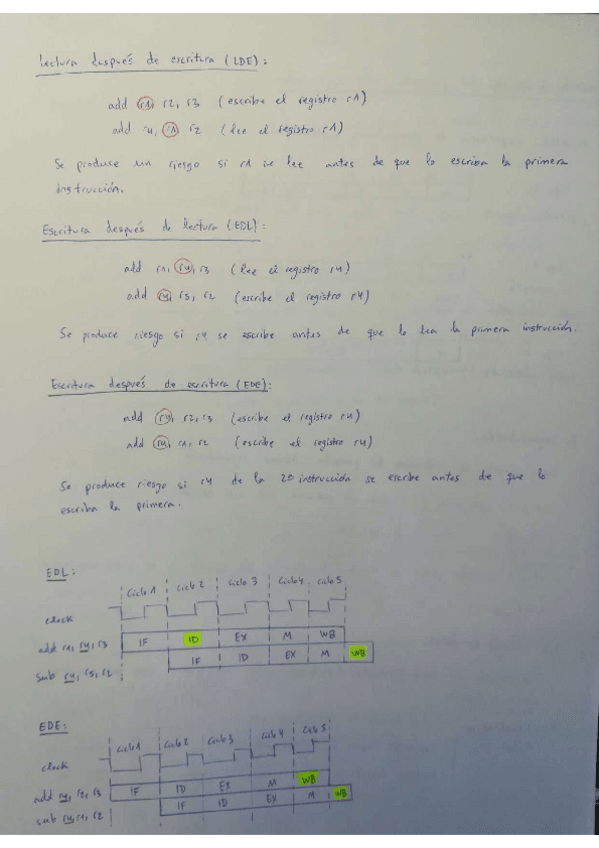 Lectura después de escritura (LDE):
add r1, r2, r3 (escribe el registro r1)
add r4, r1, r2 (lee el registro r1)
Se produce un riesgo si r1 se lee antes de que lo escriba la primera
instrucción.
Escritura después de lectura (EDL):
add r1, r4, r3 (lee el registro r4)
add r4, r3, r2 (escribe el registro r4)
Se produce riesgo si r4 se escribe antes de que lo lea la primera instrucción.
Escritura después de escritura (EDE):
add r4, r2, r3 (escribe el registro r4)
add r4, r1, r2 (escribe el registro r4)
Se produce riesgo si r4 de la 2º instrucción se escribe antes de que lo
escriba la primera.
EDL:
Ciclo 1 Ciclo 2 Ciclo 3 Ciclo 4 Ciclo 5
clock
add r1, r4, r3 IF ID EX M WB
sub r4, r3, r2 IF ID EX M WB
EDE:
Ciclo 1 Ciclo 2 Ciclo 3 Ciclo 4 Ciclo 5
clock
add r4, r2, r3 IF ID EX M WB
sub r4, r1, r2 IF ID EX M WB